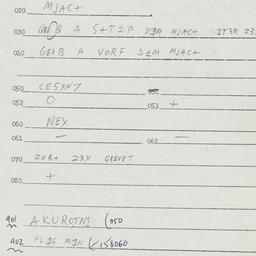 020 MJAC+
030 GBIB A S+TIP DIM MJAC+ IT3R Z3
040 GBIB A VORF DIM MJAC+
050 CE5XN7
052 O 053 +
060 NEX
061 — 062 —
070 ZOB+ Z3X GRIVET
080 +
901 AKUROTNI (050
902 FLIG MIN 158060